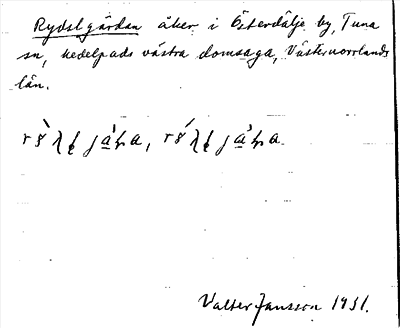 Rydslgärdan åker i Österdälje by, Tuna
sn, Medelpads västra domsaga, Västernorrlands
län.
Valter Jansson 1931.